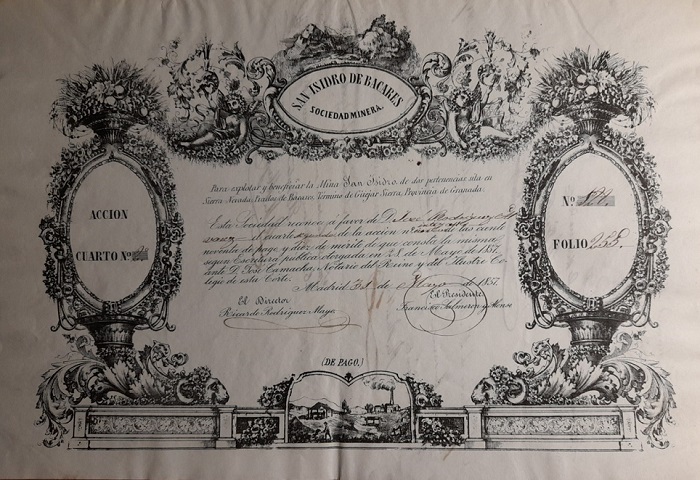 SAN ISIDRO DE BACARES
SOCIEDAD MINERA.
Para explotar y beneficiar la Mina San Isidro de dos pertenencias, sita en
Sierra Nevada, Término de Güejar Sierra, Provincia de Granada.
ACCION
CUARTO Nº
Nº
FOLIO 255.
Esta Sociedad reconoce á favor de D. José Rodriguez
cuarto de la accion nº de las ciento
noventa de pago y diez de mérito de que consta la misma
segun Escritura pública otorgada en 28 de Mayo de 1857
ante D. José Camacho, Notario del Reino y del Ilustre Co-
legio de esta Corte.
Madrid 31 de Mayo de 1857.
El Director
El Presidente
Ricardo Rodriguez Maya
Francisco Salmeron y Alonso
(DE PAGO.)